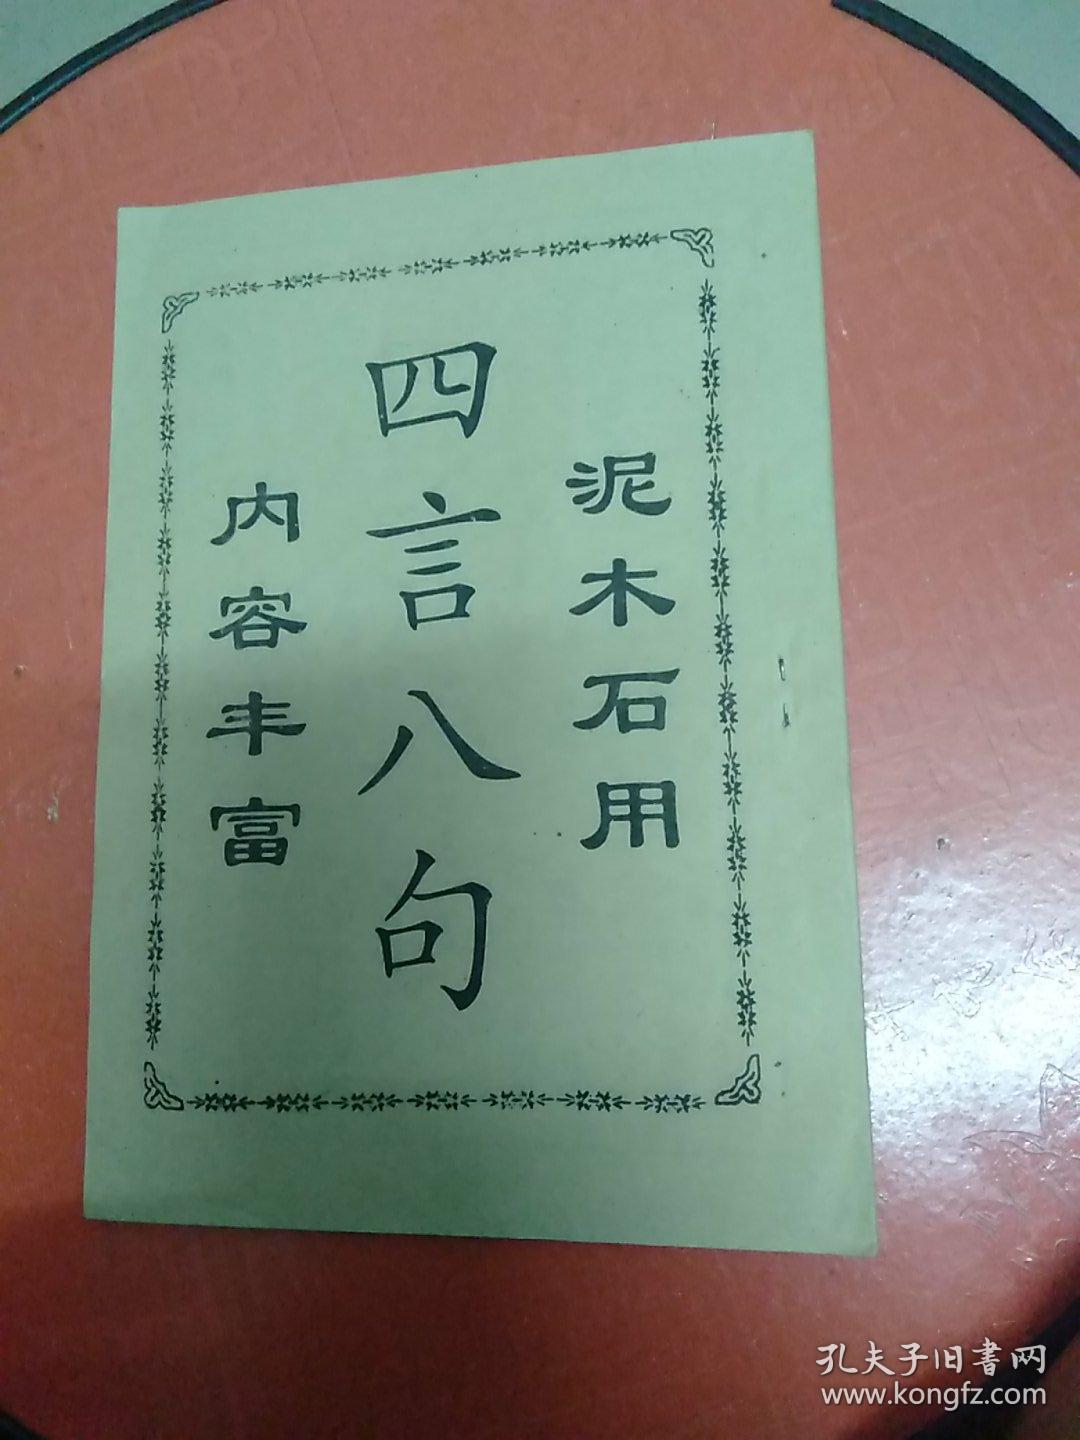 泥木石用
四言八句
内容丰富
孔夫子旧書网
www.kongfz.com